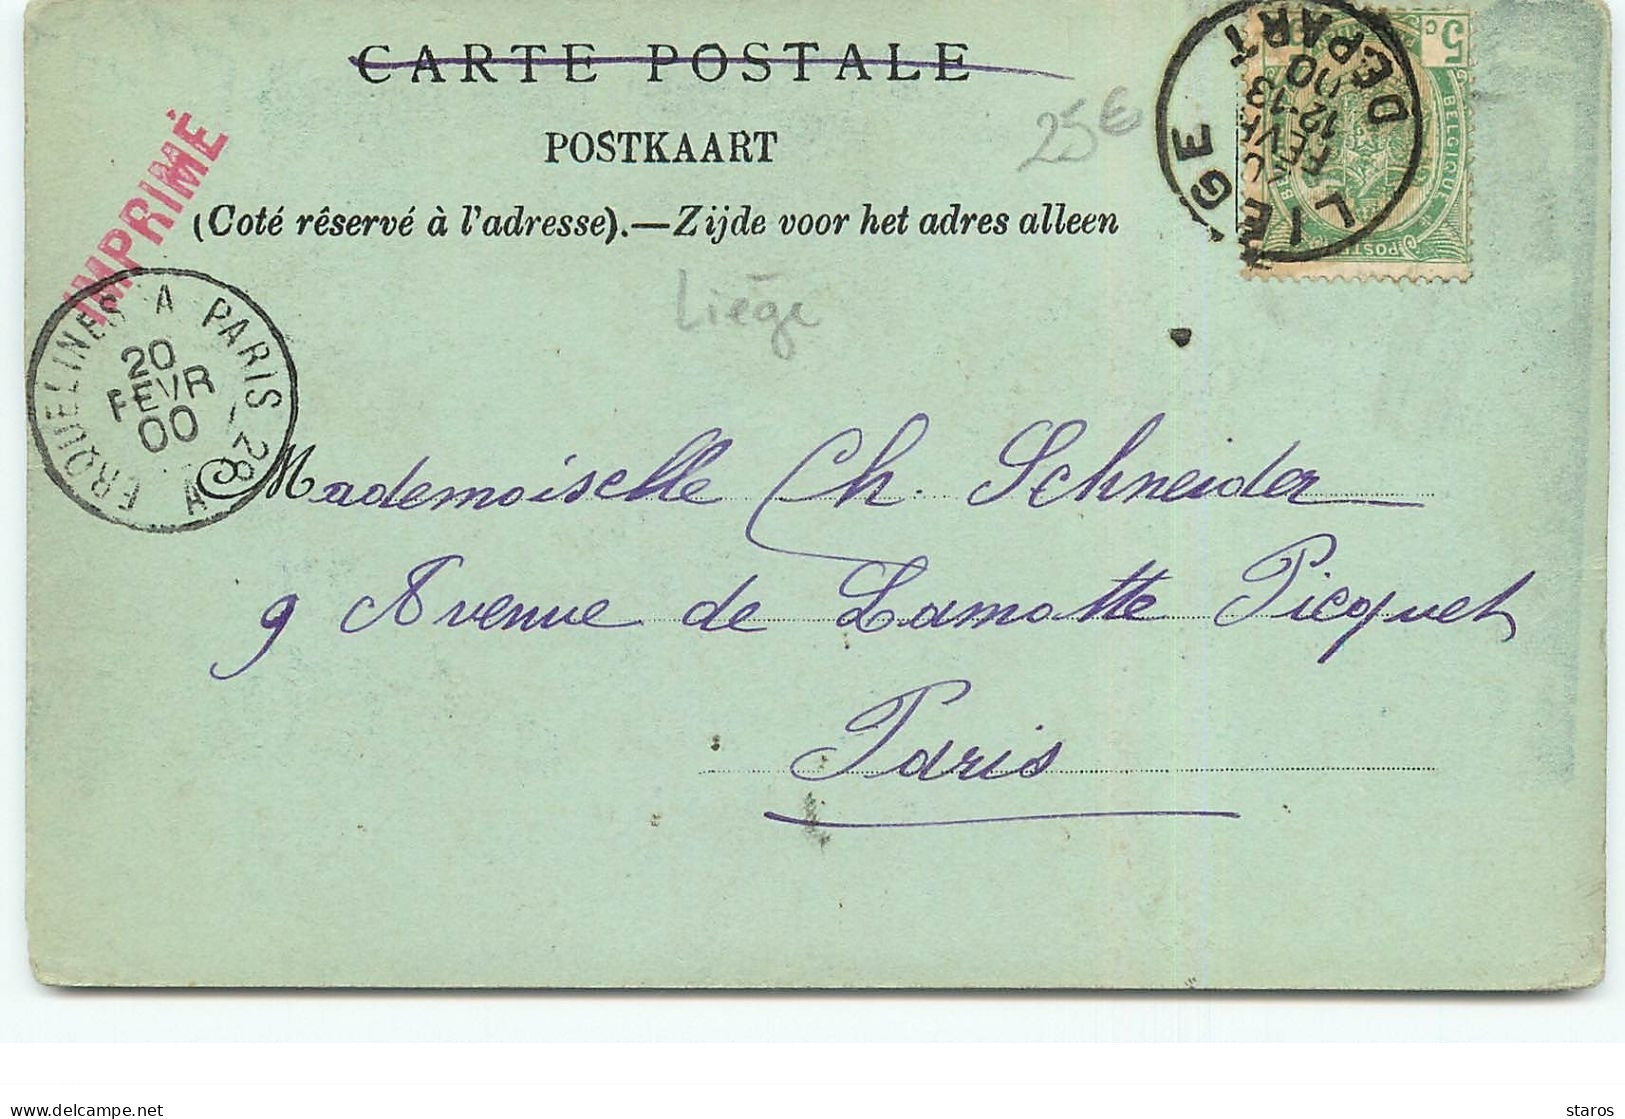 CARTE POSTALE
POSTKAART
(Coté réservé à l'adresse).—Zijde voor het adres alleen
IMPRIMÉ
25€
Liège
LIEGE DEPART
5 c
BELGIQUE
ERQUELINES A PARIS 28
20
FEVR
00
A
Mademoiselle Ch. Schneider
9 Avenue de Lamotte Picquet
Paris
staros